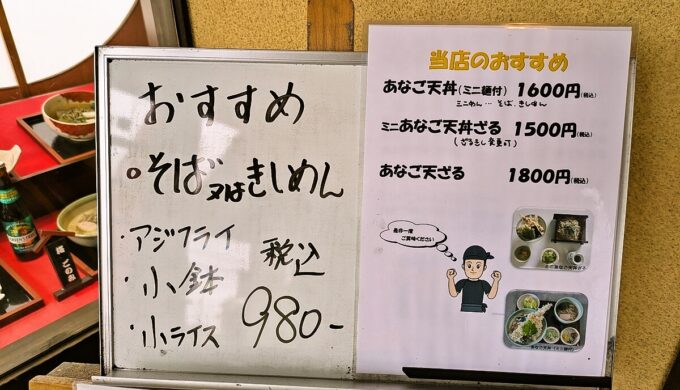 おすすめ
そば又はきしめん
・アジフライ
・小鉢
・小ライス
税込
980-
当店のおすすめ
あなご天丼(ミニ麺付) 1600円(税込)
ミニめん…そば、きしめん
ミニあなご天丼ざる 1500円(税込)
(ざるきし変更可)
あなご天ざる 1800円(税込)
是非一度
ご賞味ください